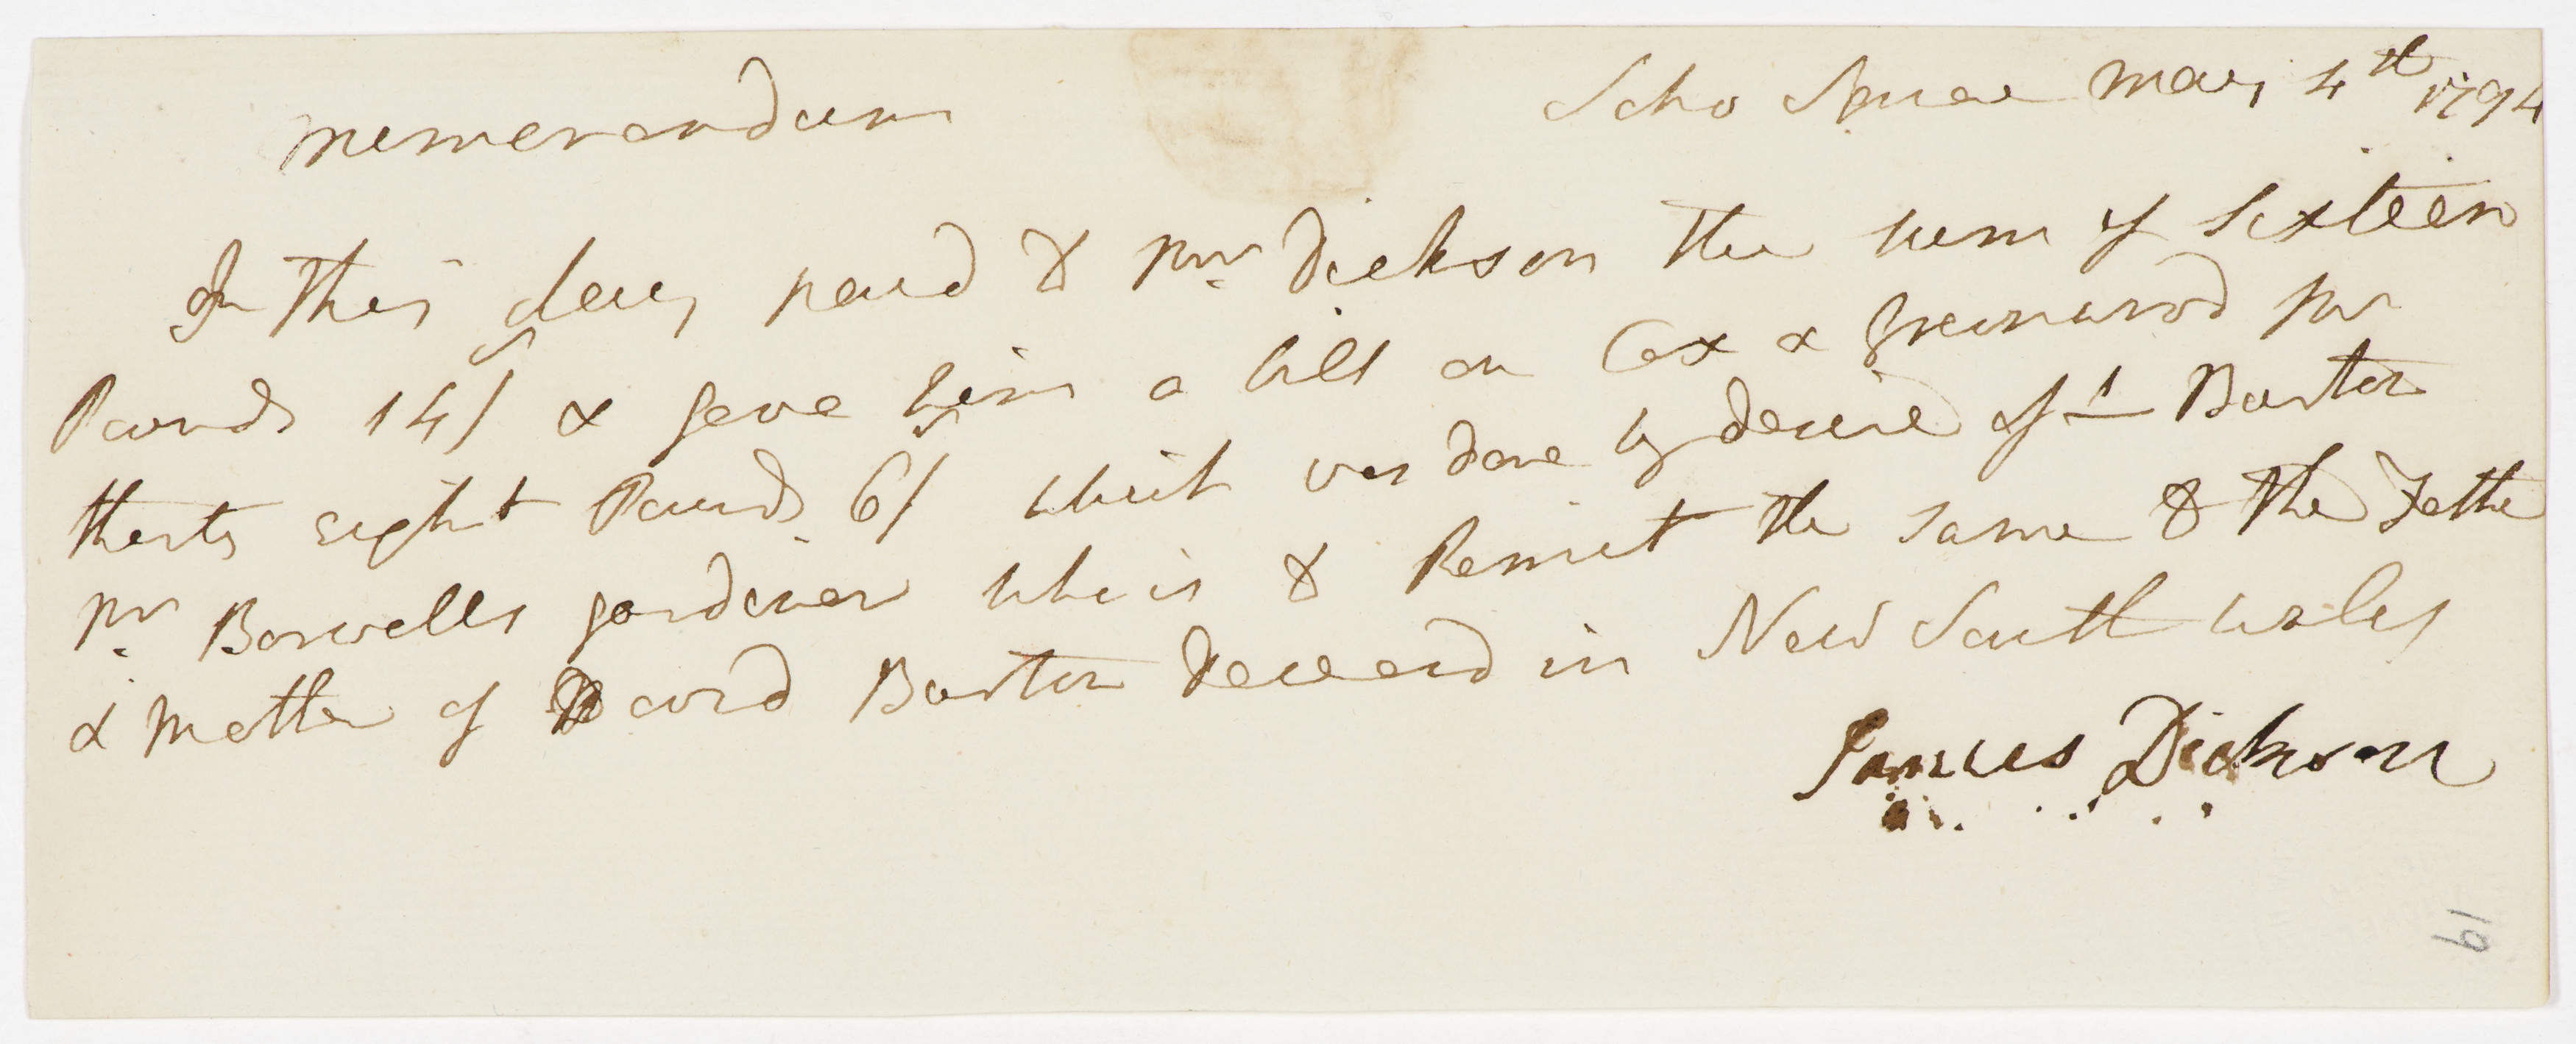 memorandum
Soho Square may 4th 1794
In this day paid to Mr Dickson the sum of sixteen
Pounds 14/ & gave him a bill on Cox & Greenwood for
therty eight Pounds 6/ which was done by desire of Burton
Mr Boswells gardiner who is to Remit the same to the Fathe
& Mother of David Burton Deceasd in New South wales
James Dickson
19